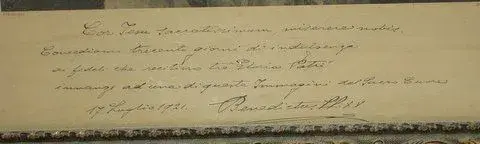 Cor Jesu sacratissimum, miserere nobis.
Concediamo trecento giorni di indulgenza
ai fedeli che recitano tre Gloria Patri
innanzi ad una di queste Immagini del Sacro Cuore
17 Luglio 1921. Benedictus PP. XV